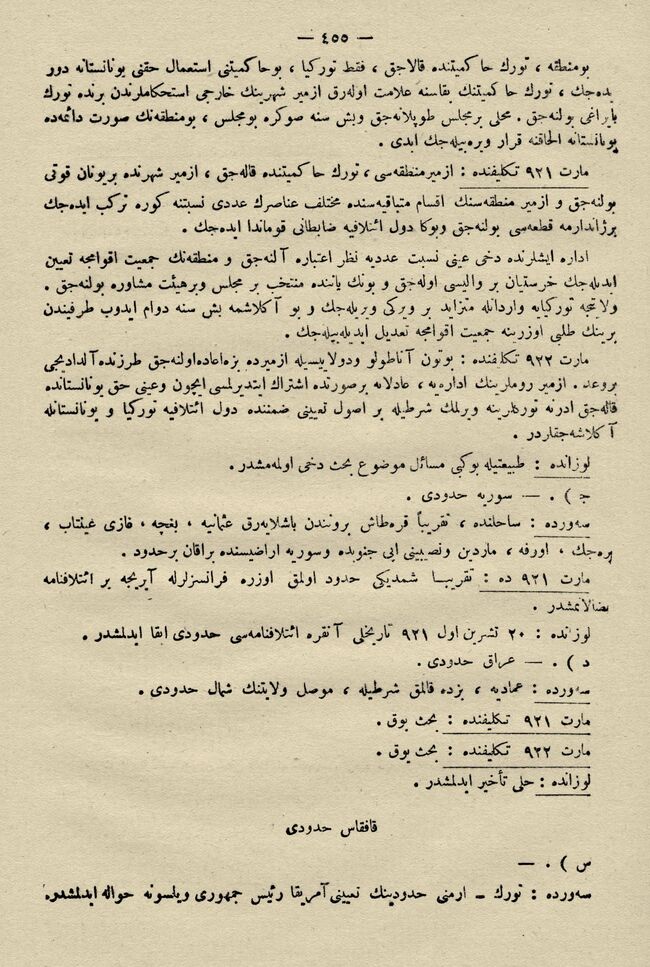 — ٤٥٥ —
بومنطقه ، تورك حاكميتنده قالاجق ، فقط توركيا ، بوحاكميتنى استعمال حقنى يونانستانه دور
يده‌جك ، تورك حاكميتنك بقاسنه علامت اوله‌رق ازمير شهرينك خارجى استحكاملرندن برنده تورك
بايراغى بولنه‌جق . محلى برمجلس طوپلانه‌جق وبش سنه صوكره بومجلس ، بومنطقه‌نك صورت دائمه‌ده
يونانستانه الحاقنه قرار ويره‌بيله‌جك ايدى .
مارت ٩٢١ تكليفنده : ازميرمنطقه‌سى ، تورك حاكميتنده قاله‌جق ، ازمير شهرنده بريونان قوتى
بولنه‌جق و ازمير منطقه‌سنك اقسام متباقيه‌سنده مختلف عناصرك عددى نسبتنه كوره تركب ايده‌جك
برژاندارمه قطعه‌سى بولنه‌جق وبوكا دول ائتلافيه ضابطانى قوماندا ايده‌جك .
اداره ايشلرنده دخى عينى نسبت عدديه نظر اعتباره آلنه‌جق و منطقه‌نك جمعيت اقوامجه تعيين
ايديله‌جك خرستيان بر واليسى اوله‌جق و بونك ياننده منتخب بر مجلس وبرهيئت مشاوره بولنه‌جق .
ولايتجه توركيايه وارداتله متزايد بر ويركى ويريله‌جك و بو آكلاشمه بش سنه دوام ايدوب طرفيندن
برينك طلبى اوزرينه جمعيت اقوامجه تعديل ايديله‌بيله‌جك .
مارت ٩٢٢ تكليفنده : بوتون آناطولو ودولاييسيله ازميرده بزه‌اعاده‌اولنه‌جق طرزنده‌آلداديجى
بروعد . ازمير روملرينك اداره‌يه ، عادلانه برصورتده اشتراك ايتديرلمسى ايچون وعينى حق يونانستانده
قاله‌جق ادرنه توركلرينه ويرلمك شرطيله بر اصول تعيينى ضمننده دول ائتلافيه توركيا و يونانستانله
آكلاشه‌جقلردر .
لوزانده : طبيعتيله بوكبى مسائل موضوع بحث دخى اوله‌مشدر .
ج ) . — سوريه حدودى .
سه‌ورده : ساحلنده ، تقريباً قره‌طاش برونندن باشلايه‌رق عثمانيه ، بغچه ، غازى عينتاب ،
يره‌جك ، اورفه ، ماردين ونصيبينى ايى جنوبده وسوريه اراضيسنده براقان برحدود .
مارت ٩٢١ ده : تقريبـا شمديكى حدود اولمق اوزره فرانسزلرله آيريجه بر ائتلافنامه
مضالانمشدر .
لوزانده : ٢٠ تشرين اول ٩٢١ تاريخلى آنقره ائتلافنامه‌سى حدودى ابقا ايدلمشدر .
د ) . — عراق حدودى .
سه‌ورده : عماديه ، بزده قالمق شرطيله ، موصل ولايتنك شمال حدودى .
مارت ٩٢١ تكليفنده : بحث يوق .
مارت ٩٢٢ تكليفنده : بحث يوق .
لوزانده : حلى تأخير ايدلمشدر .
قافقاس حدودى
س ) . —
سه‌ورده : تورك ـ ارمنى حدودينك تعيينى‌آمريقا رئيس جمهورى ويلسونه حواله ايدلمشدر.